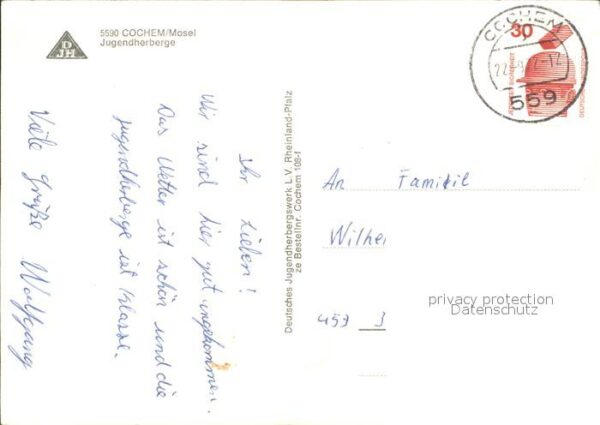 D
JH
5590 COCHEM/Mosel
Jugendherberge
Ihr Lieben!
Wir sind hier gut angekommen.
Das Wetter ist schön und die
Jugendherberge ist Klasse.
Viele Grüße Wolfgang
Deutsches Jugendherbergswerk L.V. Rheinland-Pfalz
ze Bestellnr. Cochem 108-1
COCHEM
559
30
An Familil
Wilhe
453 3
privacy protection
Datenschutz